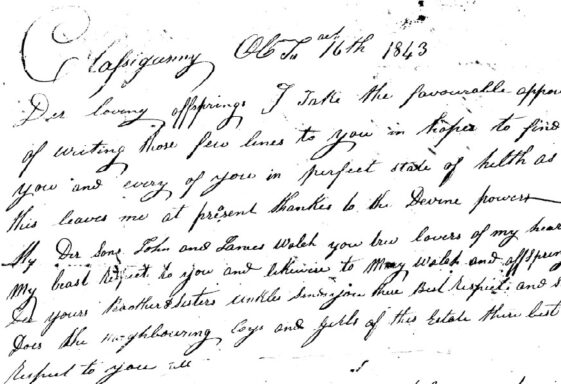 Classigunny Oct 16th 1843
Der loving offspring I Take the favourable oppor
of writing those few lines to you in hopes to find
you and every of you in perfect state of helth as
this leaves me at present thankes to the Devine powers
My Der Sons John and James Walsh you true lovers of my hear
My beast Respect to you and likewise to Mary Walsh and offspring
yours Brothers Sisters unkles sends you there Best respects and s
Does the neighbouring boys and girls of this Estate there best
Respect to you all